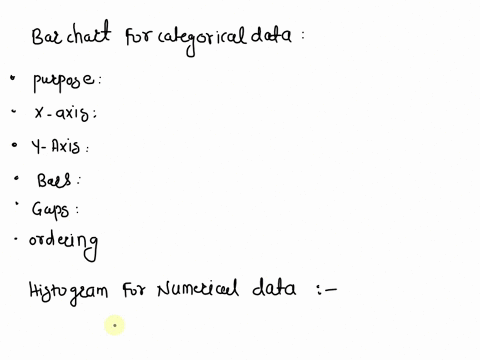 Bar chart for categorical data :
• purpose :
• X-axis :
• Y-Axis :
• Bars :
• Gaps :
• ordering
Histogram for Numerical data :-